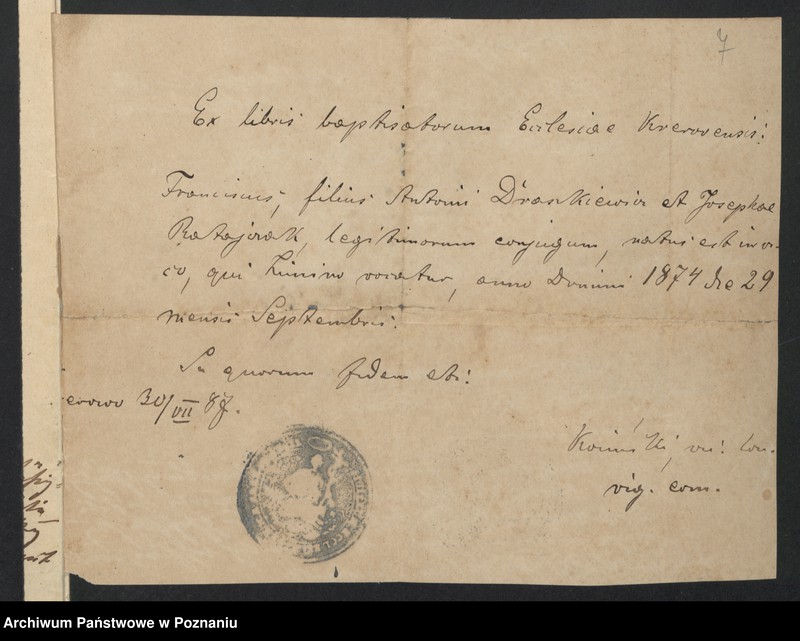 7
Ex libris baptisatorum Ecclesiae Krerovensis:
Franciscus, filius Antonii Draszkiewicz et Josephae
Ratajczak, legitimorum conjugum, natus est in vi-
co, qui Zimin vocatur, anno Domini 1874 die 29
mensis Septembris.
In quorum fidem etc:
erowo 30/VII 87.
vig. com.
Archiwum Państwowe w Poznaniu